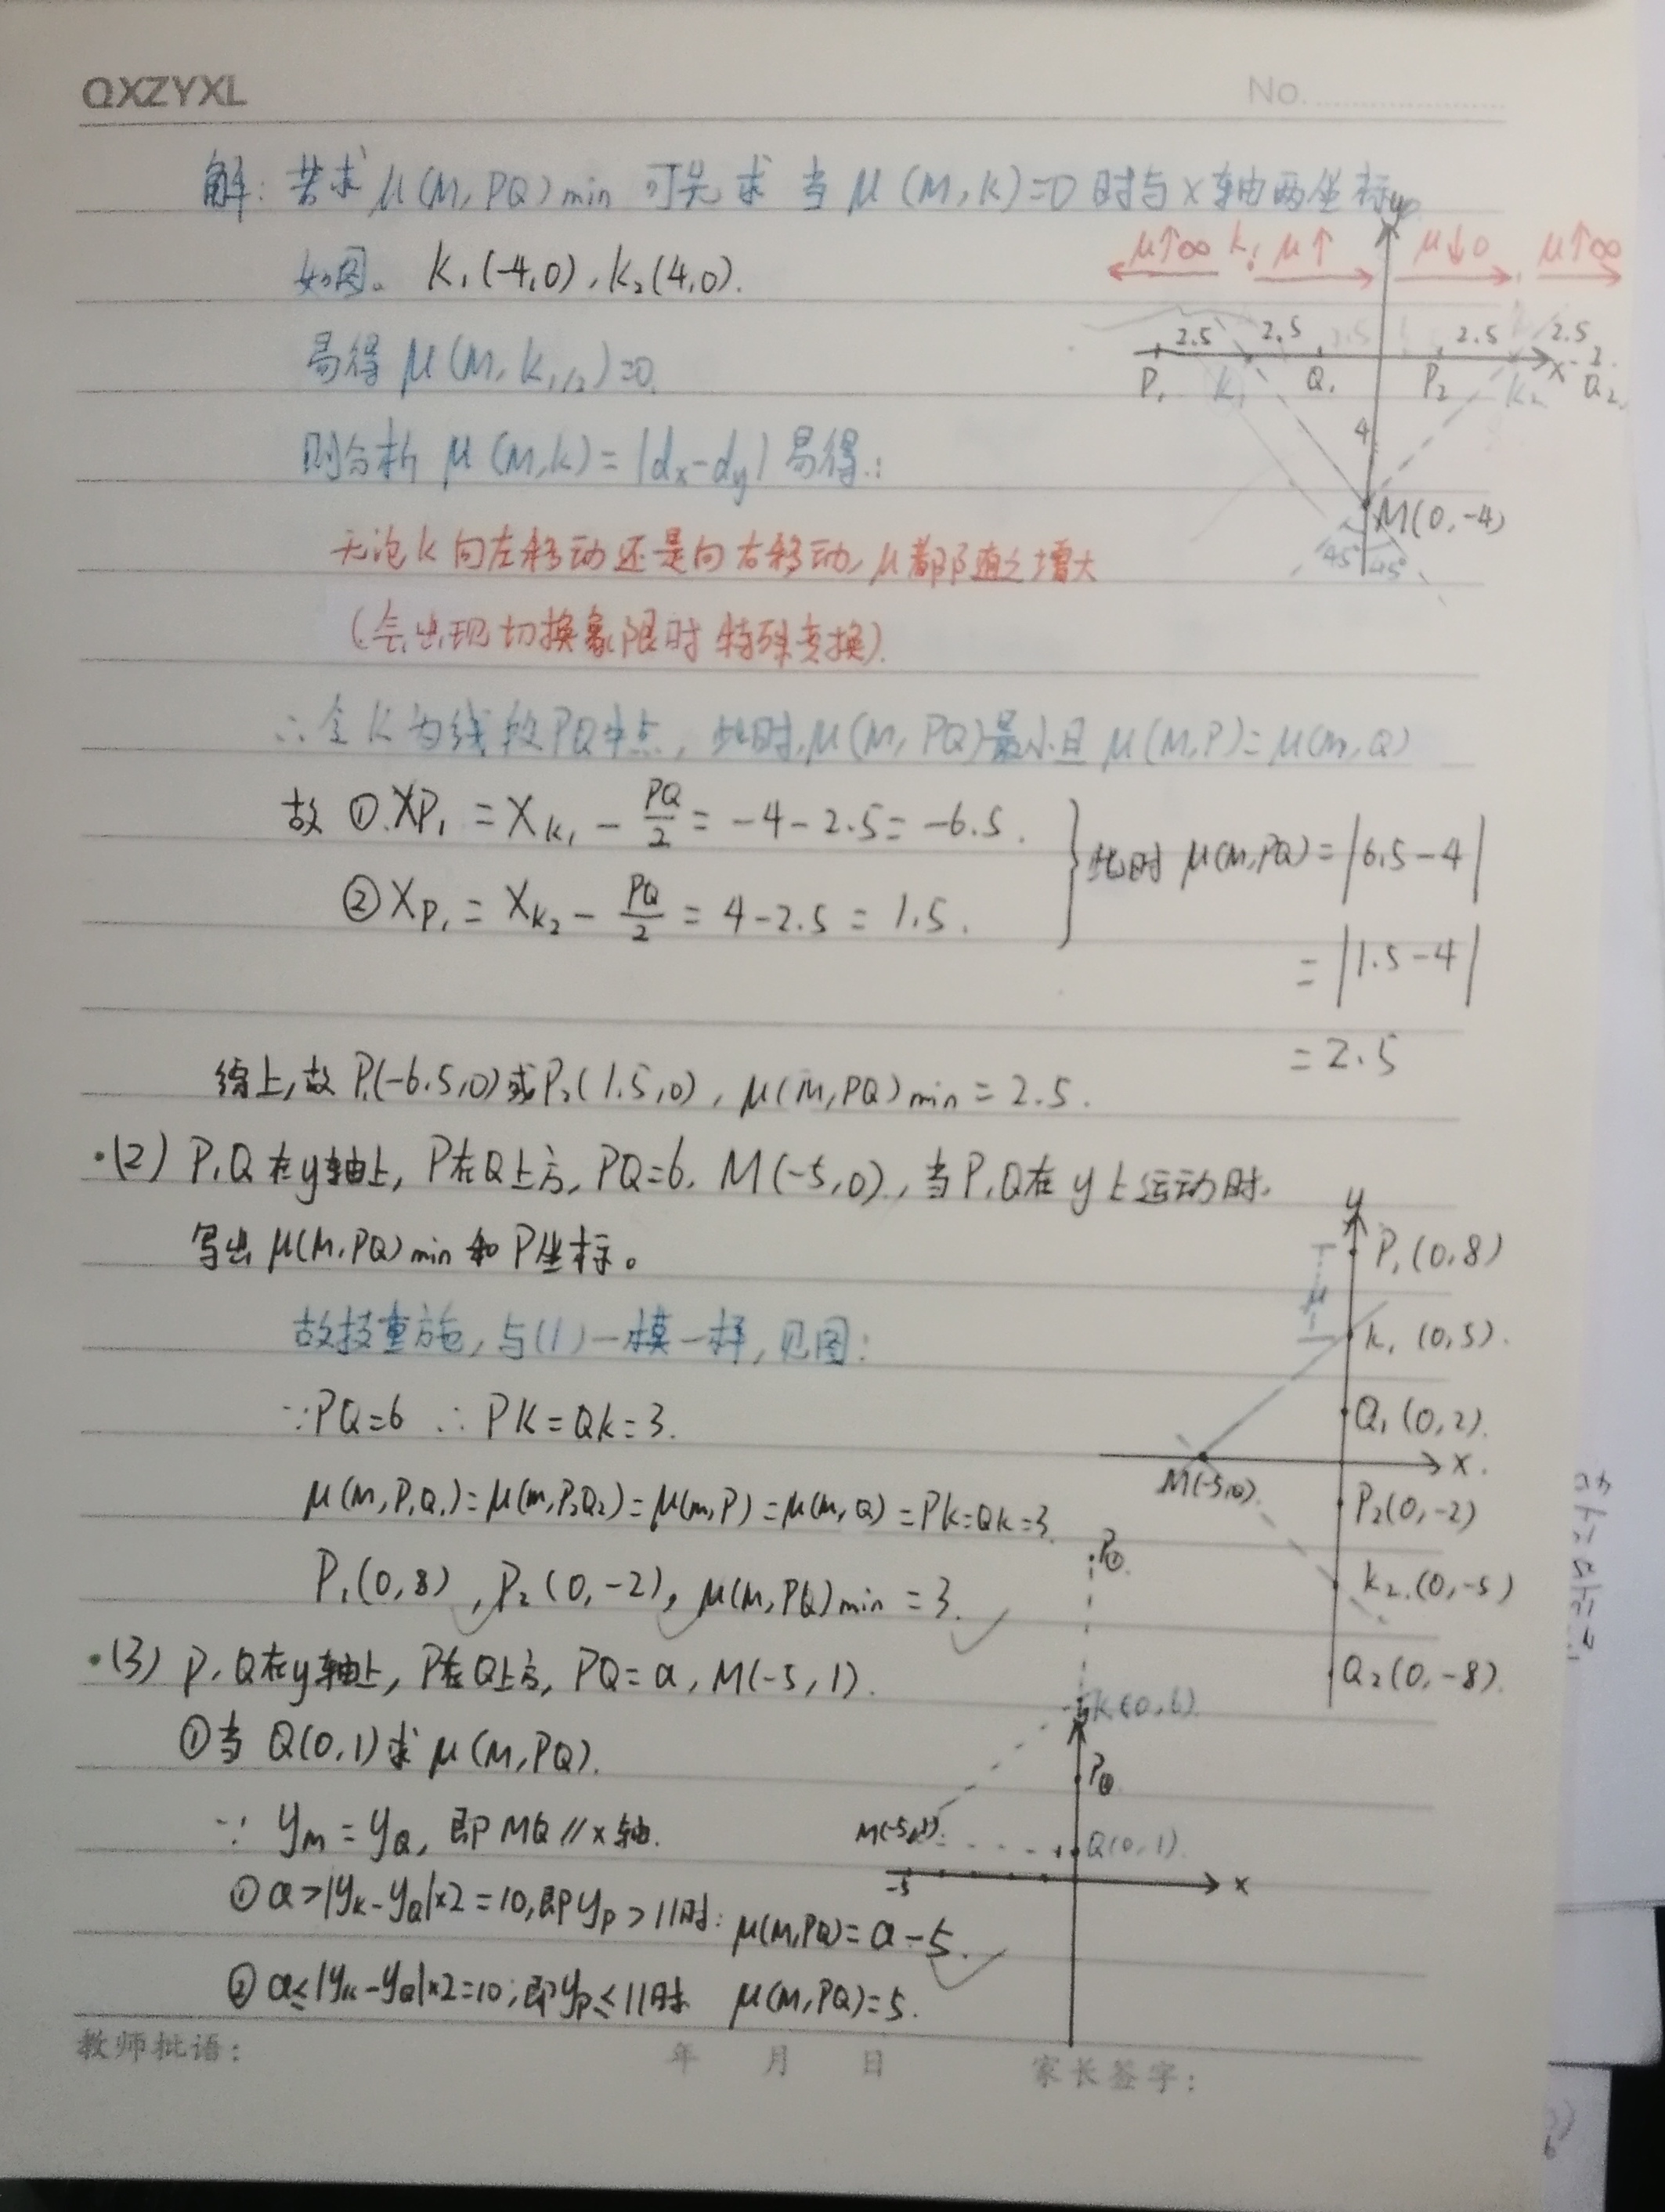 QXZYXL
No.
解: 若求 μ(M,PQ)min 可先求 当 μ(M,K)=0 时与x轴两坐标
如图。 K₁(-4,0),K₂(4,0).
易得 μ(M,K₁/₂)=0.
则分析 μ(M,K)=|dx-dy| 易得:
无论K向左移动还是向右移动,μ都随之增大
(会出现切换象限时特殊变换).
∴令K为线段PQ中点, 此时,μ(M,PQ)最小且 μ(M,P)=μ(M,Q)
故 ①.XP₁ = XK₁ - PQ/2 = -4-2.5= -6.5.
②XP₁ = XK₂ - PQ/2 = 4-2.5 = 1.5.
此时 μ(M,PQ)=|6.5-4|
=|1.5-4|
=2.5
综上,故P₁(-6.5,0)或P₂(1.5,0), μ(M,PQ)min = 2.5.
μ↑∞ K₁ μ↑ μ↓0 μ↑∞
y
2.5 2.5 2.5 2.5
P₁ K₁ Q₁ P₂ K₂ x Q₂
4
M(0,-4)
45° 45°
·(2) P,Q在y轴上, P在Q上方, PQ=6, M(-5,0), 当P,Q在y上运动时,
写出 μ(M,PQ)min 和P坐标。
故技重施, 与(1)一模一样, 见图:
∵PQ=6 ∴PK=QK=3.
μ(M,P₁Q₁)=μ(M,P₂Q₂)=μ(M,P)=μ(M,Q)=PK=QK=3.
P₁(0,8), P₂(0,-2), μ(M,PQ)min =3.
y
P₁(0,8)
μ
K₁(0,5).
Q₁(0,2).
x.
M(-5,0).
P₂(0,-2)
K₂.(0,-5)
Q₂(0,-8).
·(3) P,Q在y轴上, P在Q上方, PQ=a, M(-5,1).
①当 Q(0,1)求 μ(M,PQ).
∵ yM=yQ, 即 MQ∥x轴.
①a>|yK-yQ|×2=10,即yP>11时: μ(M,PQ)=a-5.
②a≤|yK-yQ|×2=10,即yP≤11时 μ(M,PQ)=5.
P①
K(0,6)
P②
M(-5,1).
Q(0,1).
-5
x
教师批语: 年 月 日 家长签字: